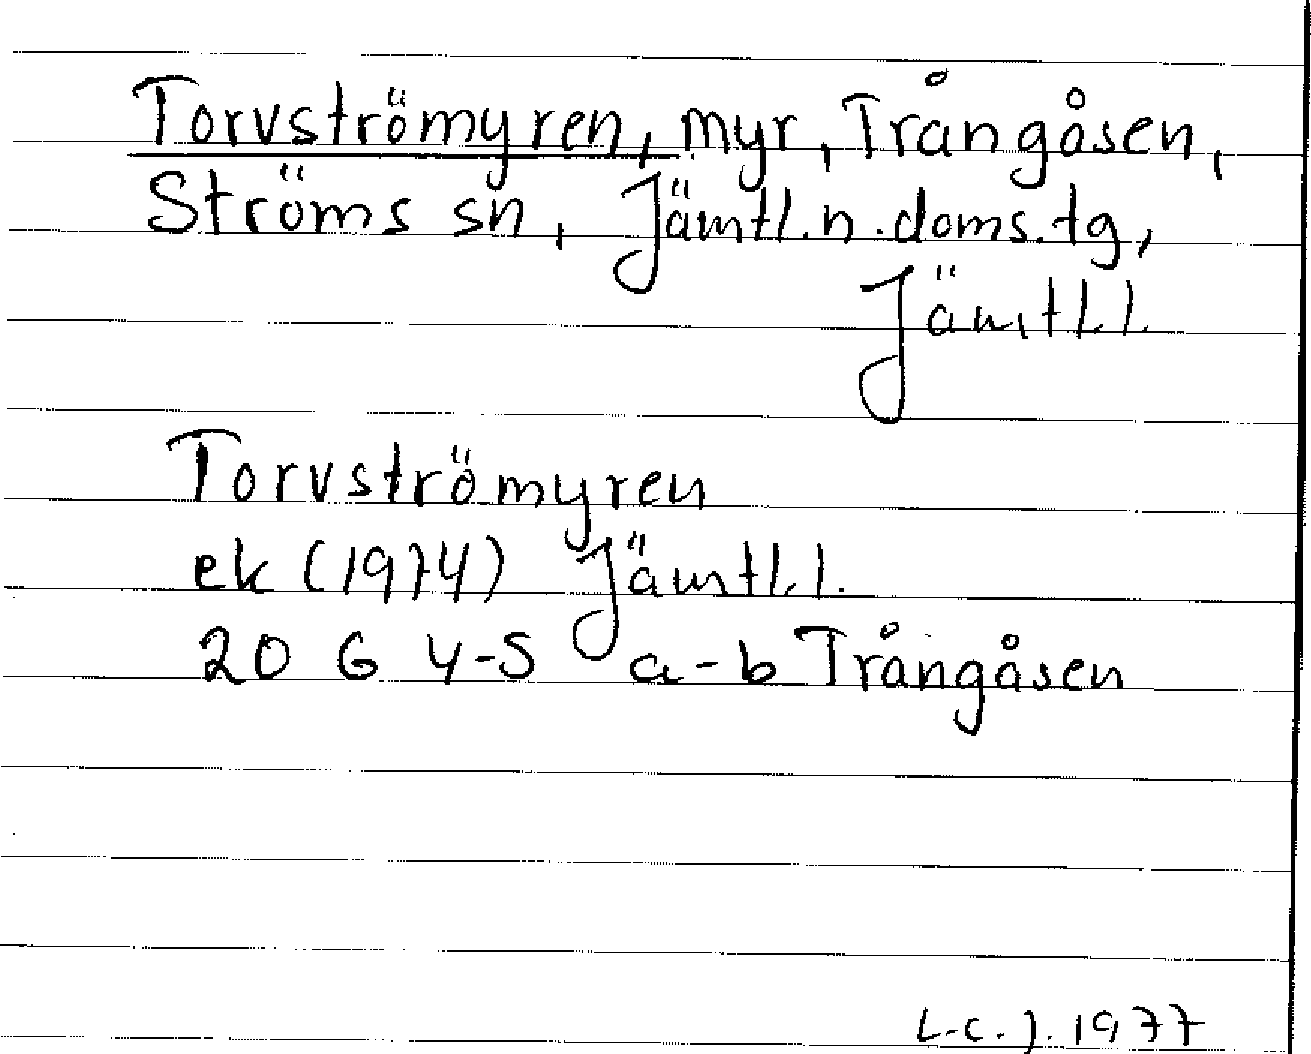 Torvströmyren, myr, Trångåsen,
Ströms sn, Jämtl.n.doms.tg,
Jämtl.l.
Torvströmyren
ek (1974) Jämtl.l.
20 G 4-5 a-b Trångåsen
L-C.J. 1977